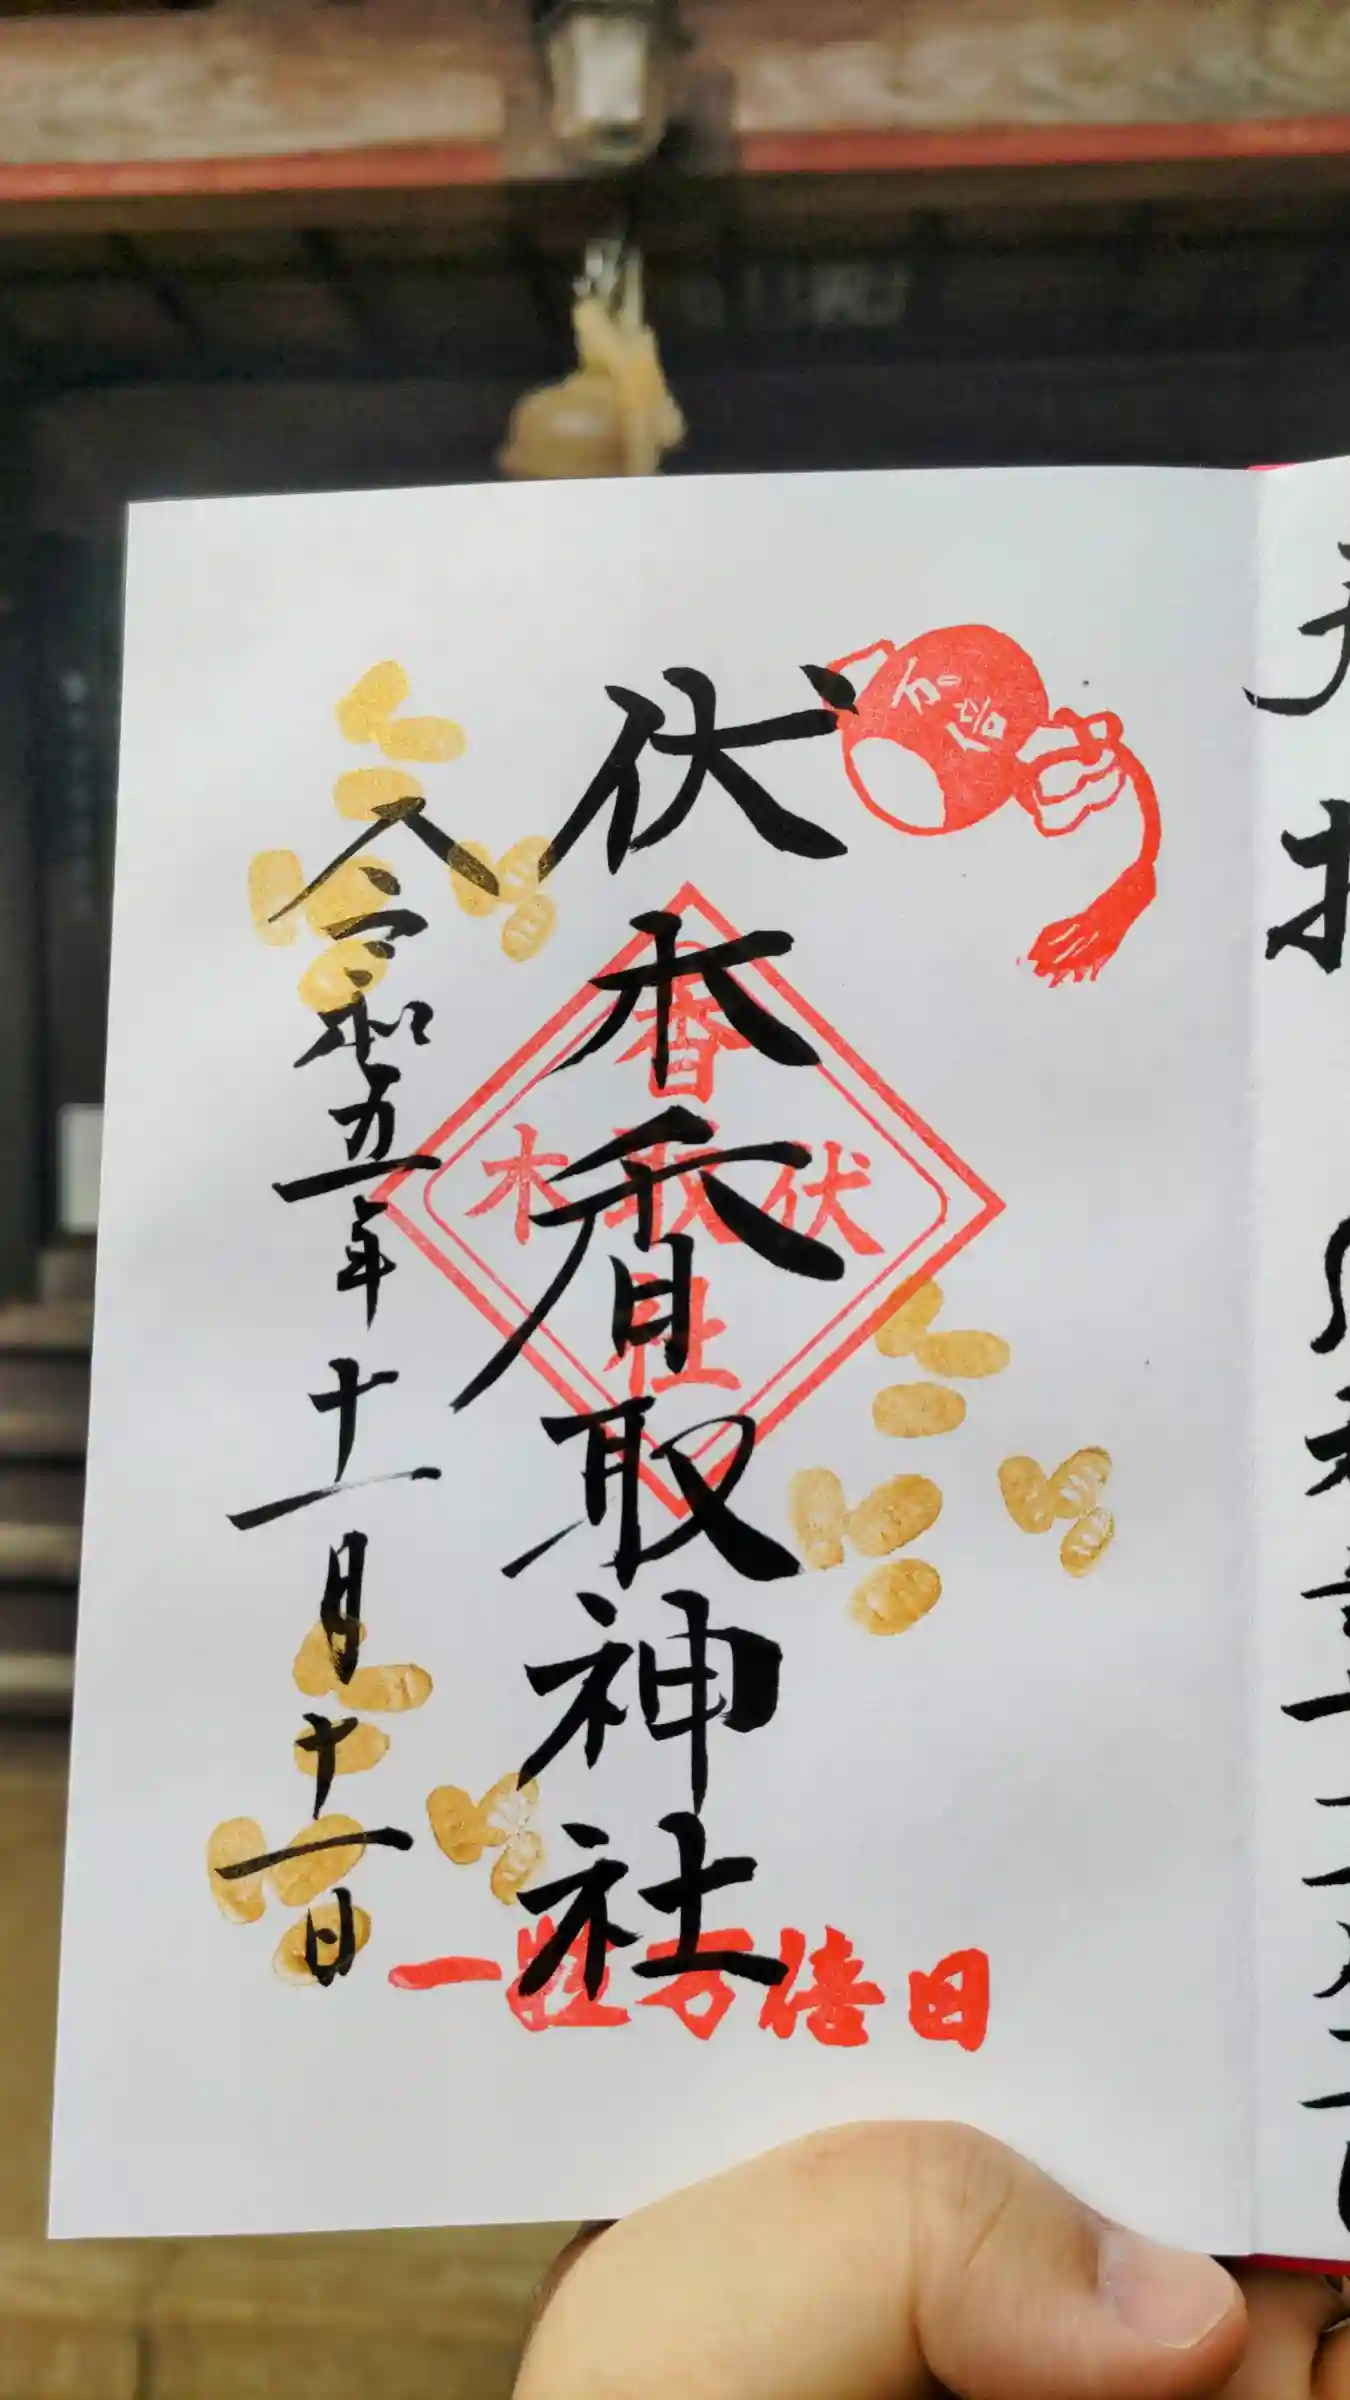 万倍
伏木香取神社
香
伏取木
社
令和五年十一月十一日
一粒万倍日